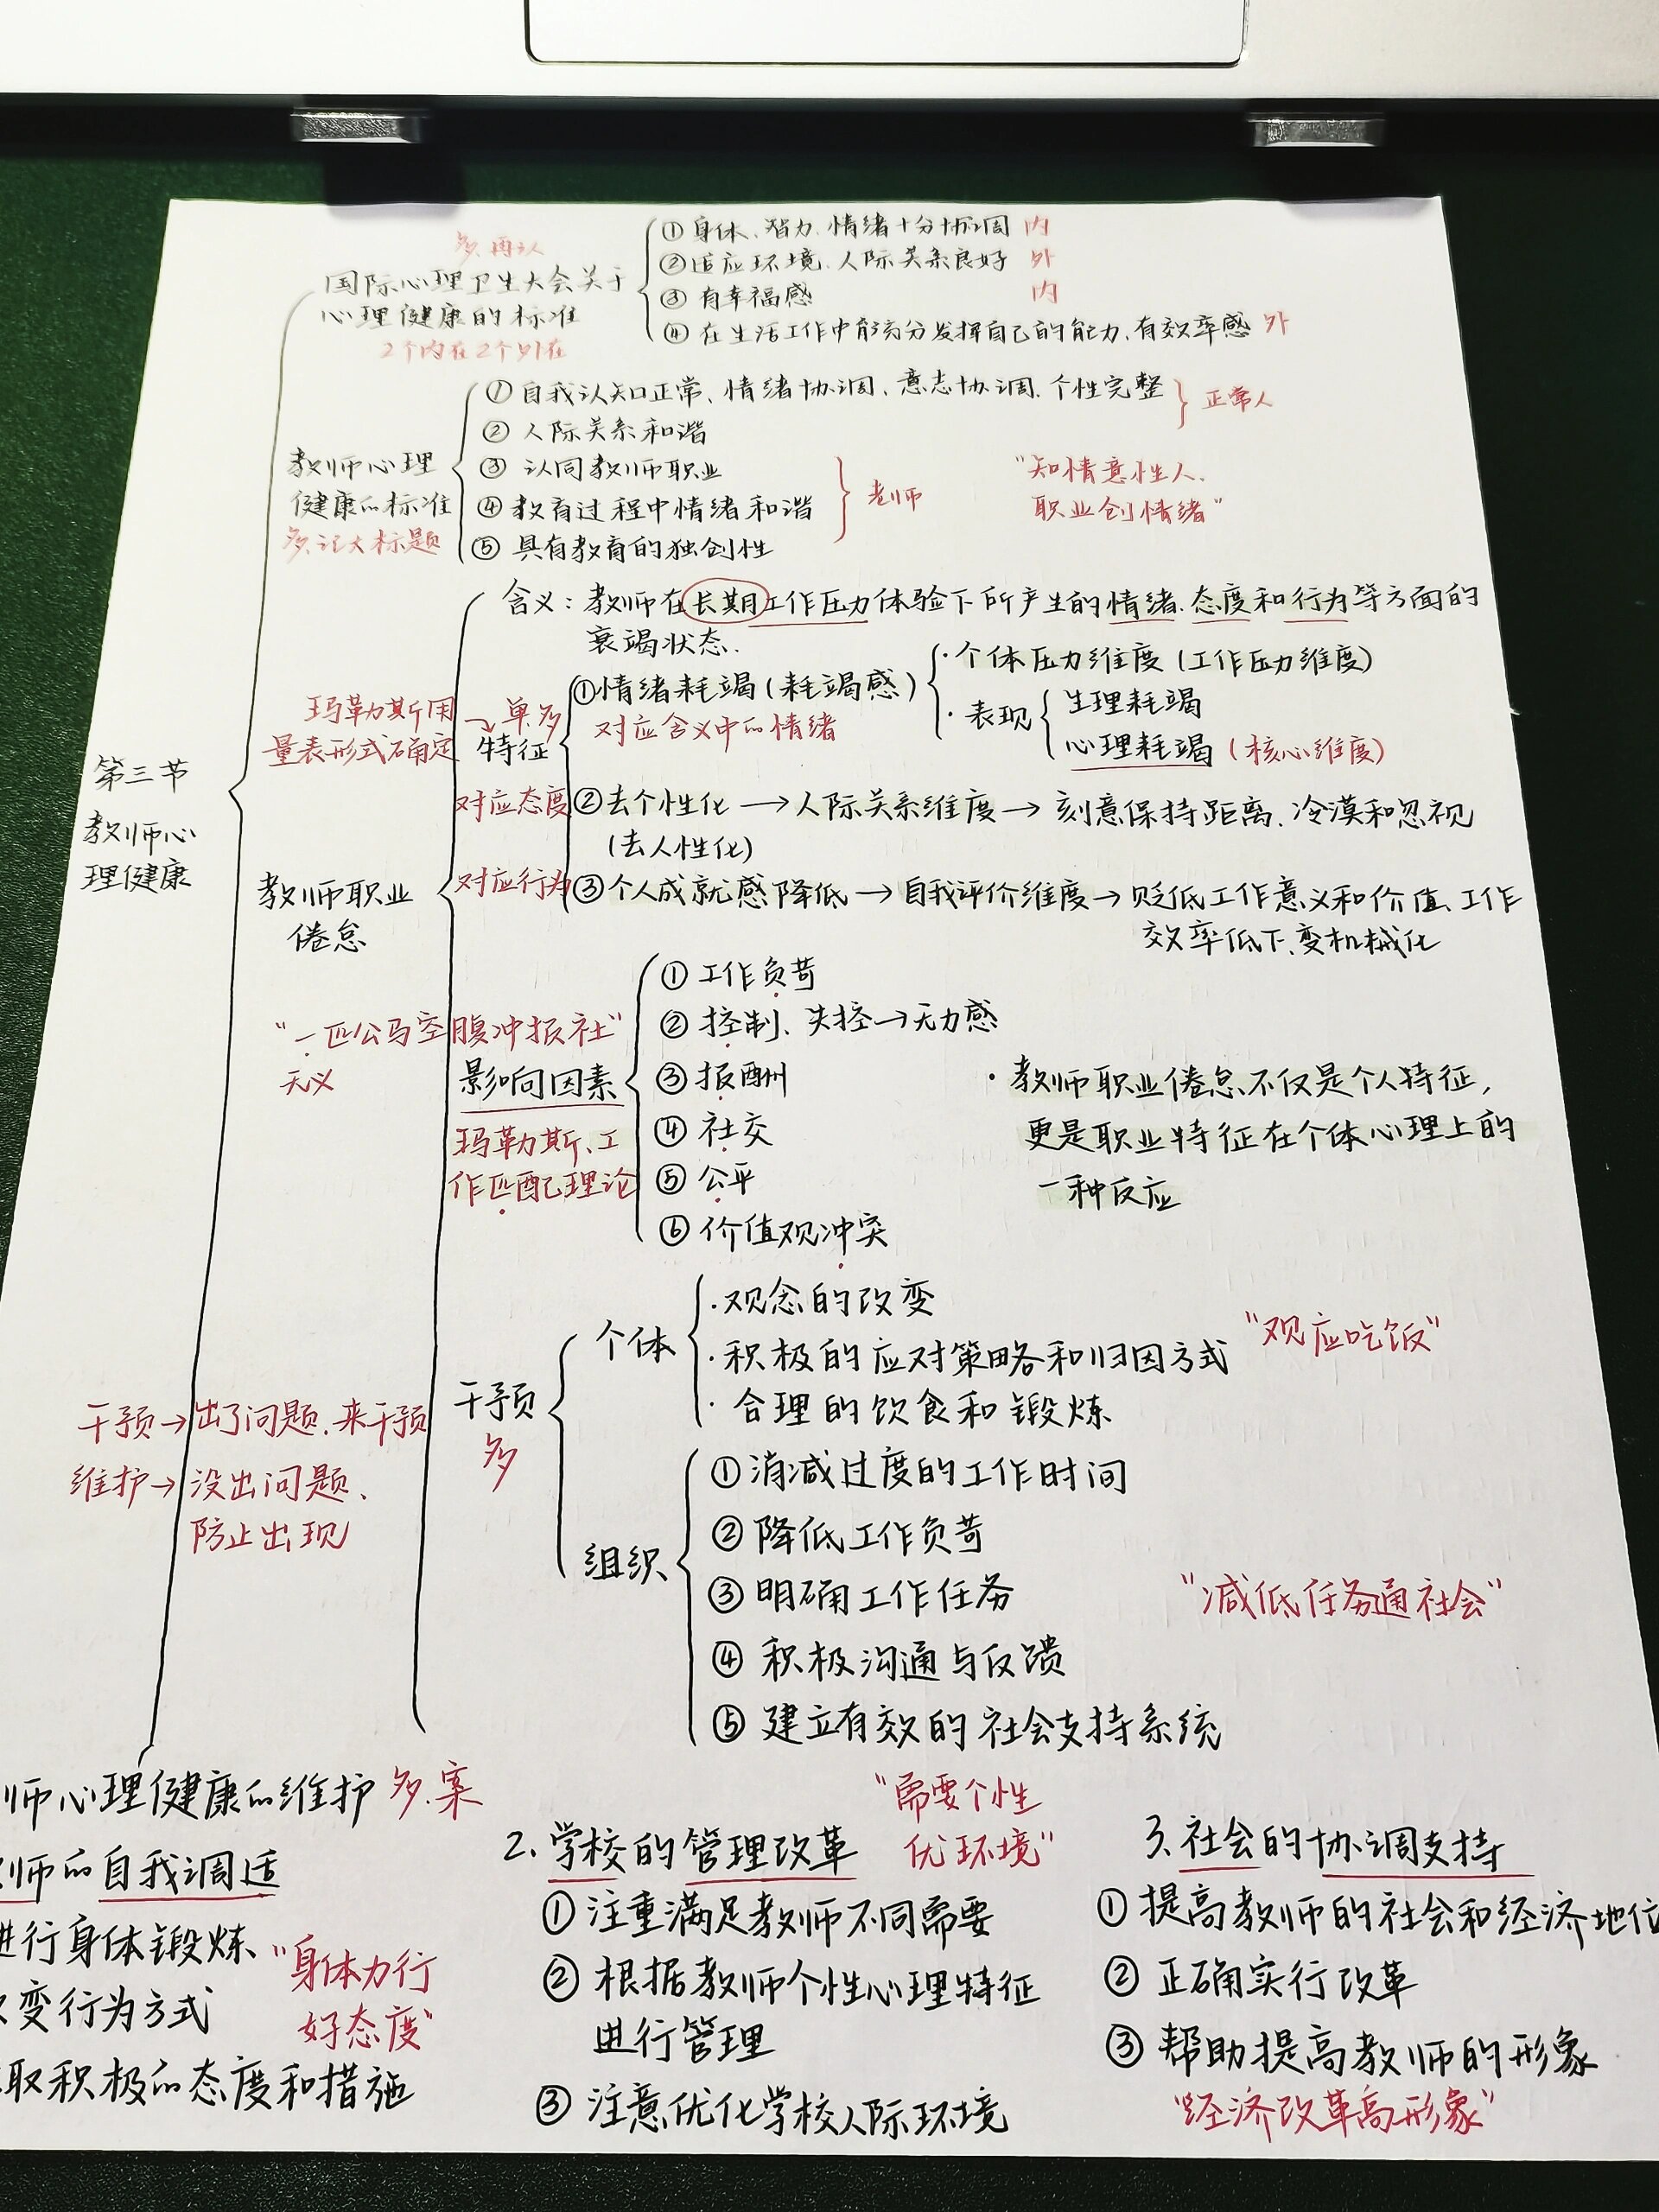 第三节
教师心
理健康
多.再认
国际心理卫生大会关于
心理健康的标准
2个内在2个外在
①身体、智力、情绪十分协调 内
②适应环境、人际关系良好 外
③有幸福感 内
④在生活工作中能充分发挥自己的能力、有效率感 外
教师心理
健康的标准
多.记大标题
①自我认知正常、情绪协调、意志协调、个性完整
②人际关系和谐
正常人
③认同教师职业
④教育过程中情绪和谐
⑤具有教育的独创性
老师
"知情意性人、
职业创情绪"
教师职业
倦怠
含义：教师在长期工作压力体验下所产生的情绪、态度和行为等方面的
衰竭状态.
玛勒斯用
量表形式确定
单.多
特征
①情绪耗竭(耗竭感)
对应含义中的情绪
·个体压力维度(工作压力维度)
·表现
生理耗竭
心理耗竭(核心维度)
对应态度
②去个性化→人际关系维度→刻意保持距离、冷漠和忽视
(去人性化)
对应行为
③个人成就感降低→自我评价维度→贬低工作意义和价值、工作
效率低下、变机械化
"一匹公马空腹冲报社"
无义
影响因素
玛勒斯、工
作匹配理论
①工作负荷
②控制、失控→无力感
③报酬
④社交
⑤公平
⑥价值观冲突
·教师职业倦怠不仅是个人特征，
更是职业特征在个体心理上的
一种反应
干预→出了问题.来干预
维护→没出问题、
防止出现
干预
多
个体
·观念的改变
·积极的应对策略和归因方式
·合理的饮食和锻炼
"观应吃饭"
组织
①消减过度的工作时间
②降低工作负荷
③明确工作任务
④积极沟通与反馈
⑤建立有效的社会支持系统
"减低任务通社会"
师心理健康的维护 多.案
师的自我调适
进行身体锻炼
变行为方式
取积极的态度和措施
"身体力行
好态度"
2.学校的管理改革
"需要个性
优环境"
①注重满足教师不同需要
②根据教师个性心理特征
进行管理
③注意优化学校人际环境
3.社会的协调支持
①提高教师的社会和经济地位
②正确实行改革
③帮助提高教师的形象
"经济改革高形象"